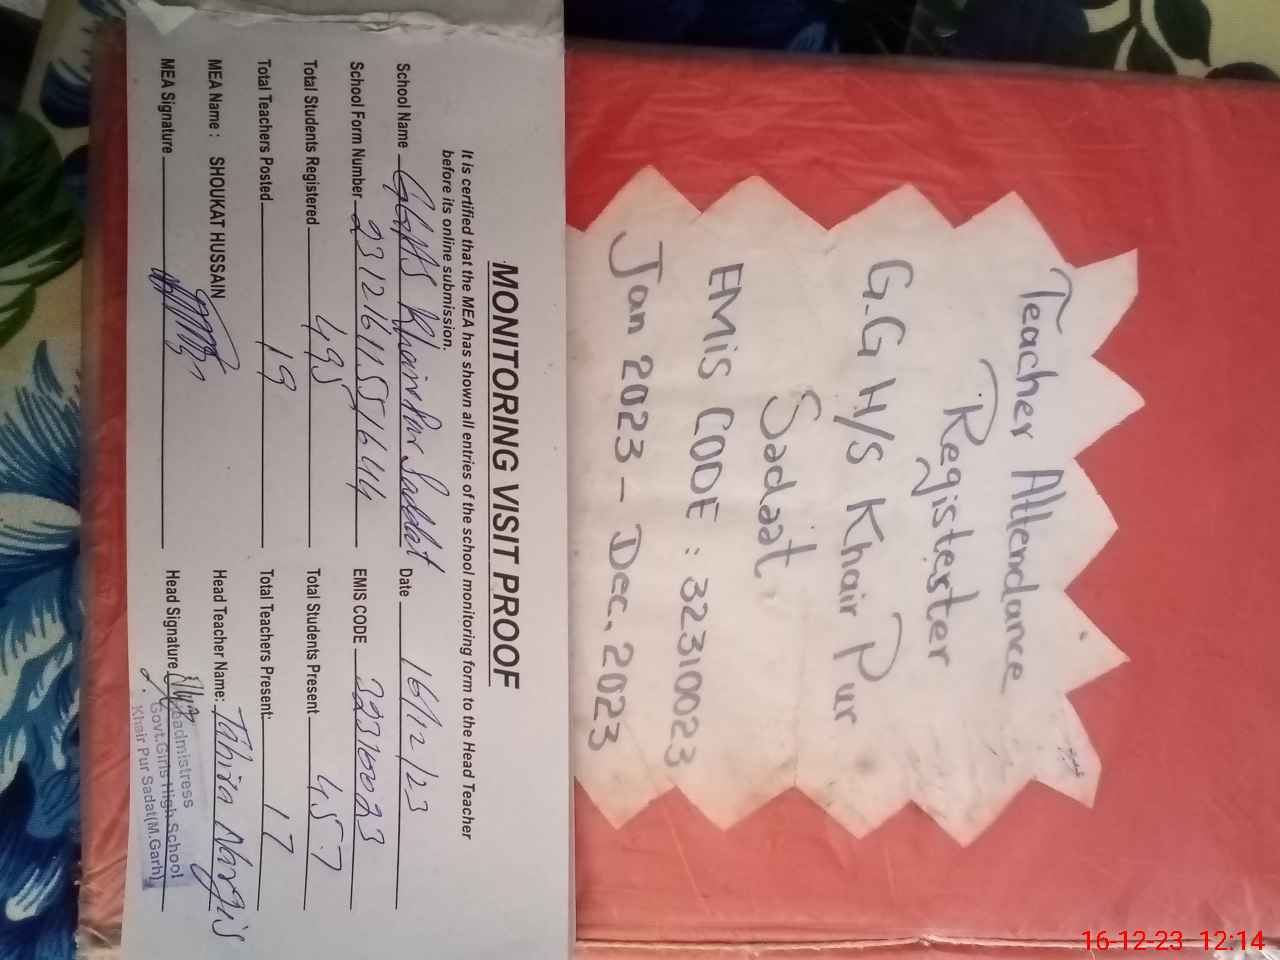 MONITORING VISIT PROOF
It is certified that the MEA has shown all entries of the school monitoring form to the Head Teacher
before its online submission.
School Name GGHS Khairpur Saddat Date 16/12/23
School Form Number EMIS CODE 32310023
Total Students Registered 495 Total Students Present 457
Total Teachers Posted 19 Total Teachers Present: 17
MEA Name : SHOUKAT HUSSAIN Head Teacher Name: Tahira Nargis
MEA Signature Head Signature
Headmistress
Govt.Girls High School
Khair Pur Sadat(M.Garh)
Teacher Attendance
Registester
G.G H/S Khair Pur
Sadaat
EMiS CODE : 32310023
Jan 2023 - Dec. 2023
16-12-23 12:14